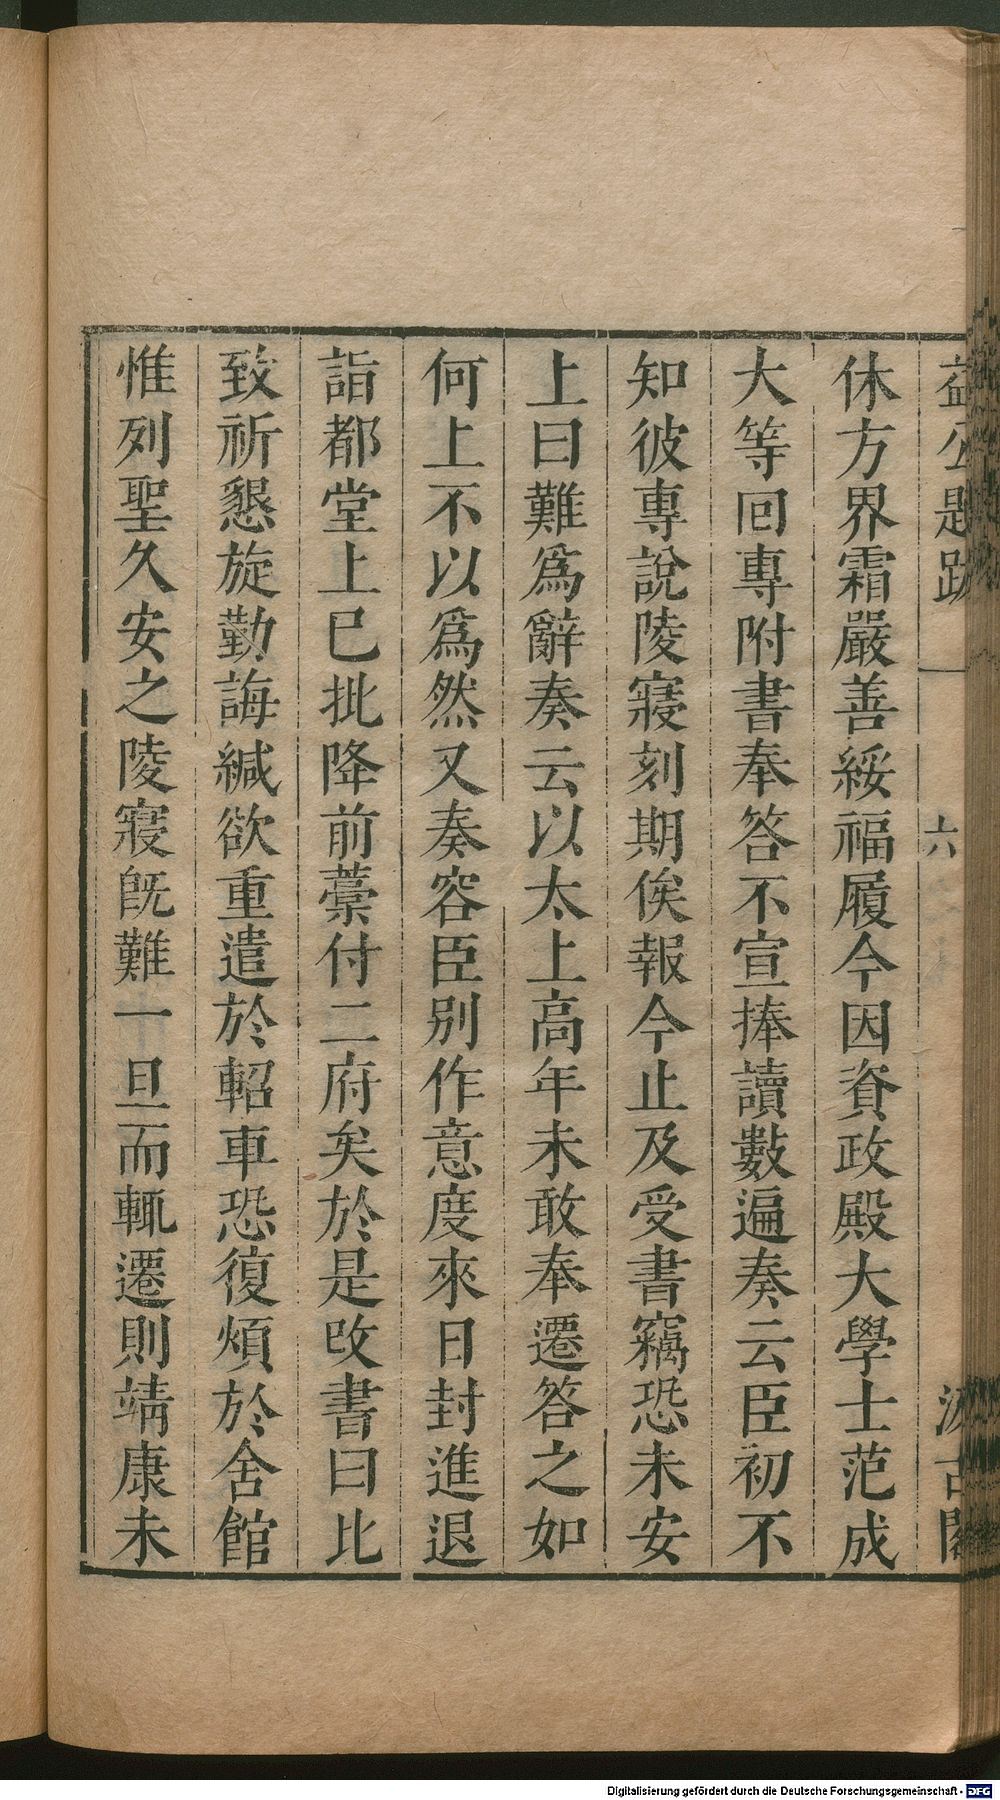 益公題跋 一 六 汲古閣
休方界霜嚴善綏福履今因資政殿大學士范成
大等回專附書奉答不宣捧讀數遍奏云臣初不
知彼專說陵寢刻期俟報今止及受書竊恐未安
上曰難爲辭奏云以太上高年未敢奉遷答之如
何上不以爲然又奏容臣别作意度來日封進退
詣都堂上已批降前藁付二府矣於是改書曰比
致祈懇旋勤誨緘欲重遣於軺車恐復煩於舍館
惟列聖久安之陵寢旣難一旦而輒遷則靖康未
Digitalisierung gefördert durch die Deutsche Forschungsgemeinschaft - DFG